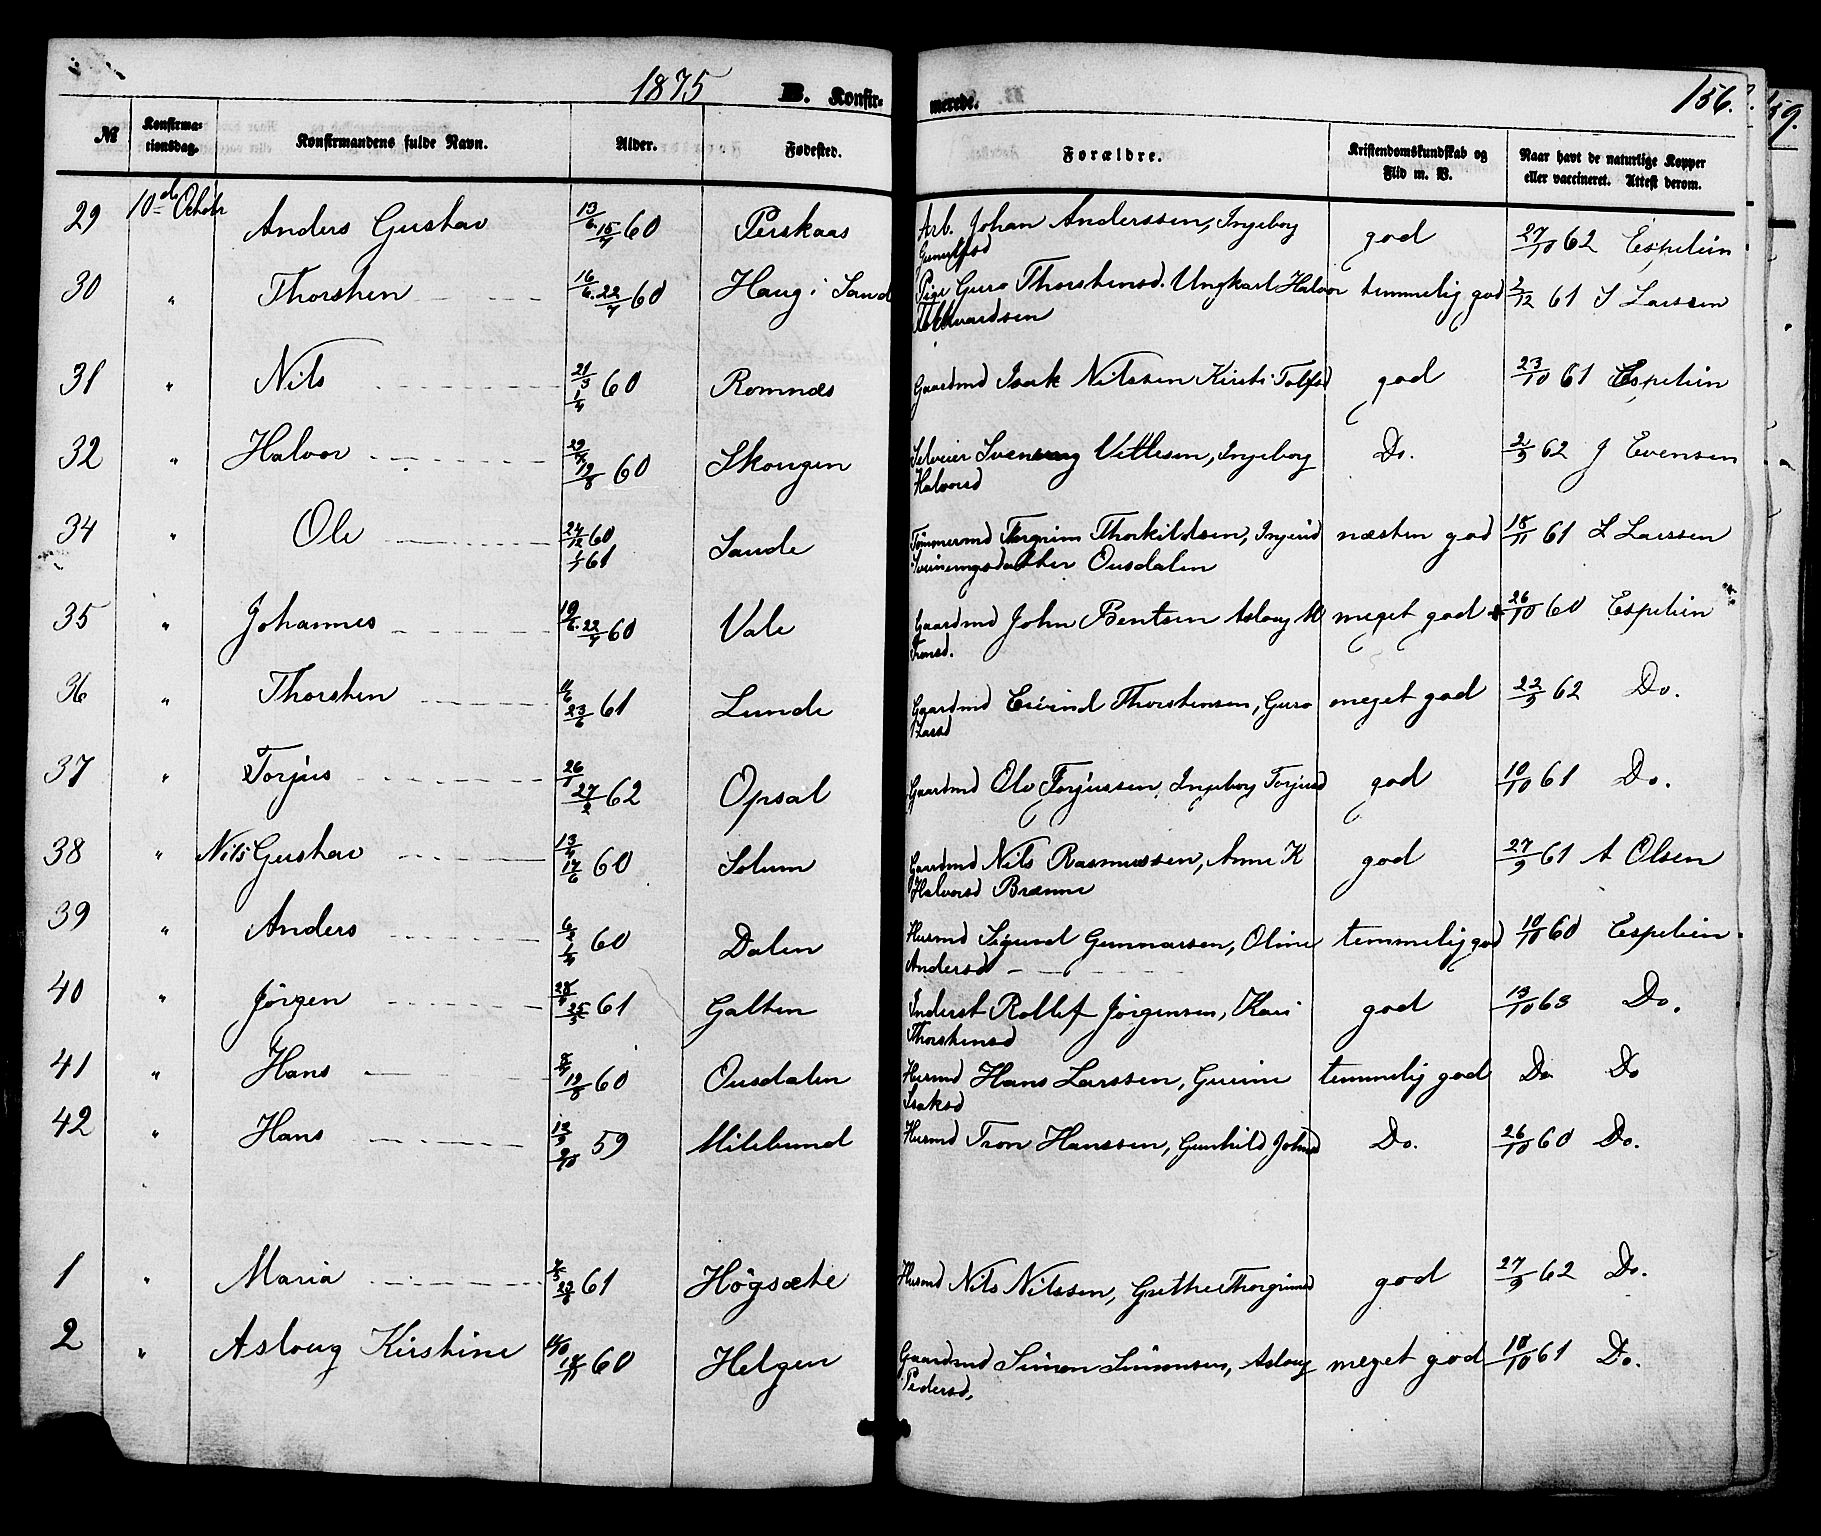 1875 B. Konfir- merede. 156.
159.
№ Konfirma-tionsdag. Konfirmandens fulde Navn. Alder. Fødested. Forældre. Kristendomskundskab og Flid m. V. Naar havt de naturlige Kopper eller vaccineret. Attest derom.
29 10de Octobr Anders Gustav 13/6. 15/7 60 Perskaas Arb. Johan Anderssen, Ingeborg god 27/10 62 Espelien
Gunulfsd
30 " Thorsten 16/6. 22/7 60 Haug i Sand Pige Guro Thorstensd. Ungkarl Halvor temmelig god 2/12 61 S Larssen
31 " Nils 21/3 1/4 60 Romnæs Gaardmd Isak Nilssen Kirsti Tolfsd god 23/10 61 Espelien
32 " Halvor 29/7 19/8 60 Skougen Selveier Svenung Vetlesen, Ingeborg Do. 2/9 62 J Evensen
Halvorsd
34 " Ole 24/12 60 1/1 61 Sande Tømmermd Torgrim Thorkildsen, Ingerid næsten god 18/11 61 L Larssen
Sveinungsdatter Ousdalen
35 " Johannes 10/6. 22/7 60 Vale Gaardmd John Bentsen Aslaug M meget god 26/10 60 Espelien
Tronsd.
36 " Thorsten 11/6 23/6 61 Lunde Gaardmd Eivind Thorstensen, Guro meget god 22/9 62 Do.
Larsd
37 " Torjus 26/1 27/2 62 Opsal Gaardmd Ole Torjussen, Ingeborg Torjusd god 10/10 61 Do.
38 " Nils Gustav 13/4 17/6 60 Solum Gaardmd Nils Rasmussen, Anne K god 27/9 61 A Olsen
Halvorsd Brænne
39 " Anders 6/2 1/4 60 Dalen Husmd Sigurd Gunnarsen, Oline temmelig god 10/10 60 Espelien
Andersd
40 " Jörgen 28/4 25/5 61 Galten Inderst Rollef Jörgensen, Kari god 13/10 63 Do.
Thorstensd
41 " Hans 8/7 19/8 60 Ousdalen Husmd Hans Larssen, Gurine temmelig god Do Do
Isaksd
42 " Hans 12/9 9/10 59 Milebund Husmd Tron Hanssen, Gunhild Johnsd Do. 26/10 60 Do.
1 " Maria 7/5 29/6 61 Högsæte Husmd Nils Nilssen, Grethe Thorgrimsd god 27/9 62 Do.
2 " Aslaug Kirstine 60 Helgen Gaardmd Simon Simonsen, Aslaug meget god 10/10 61 Do.
Pedersd.